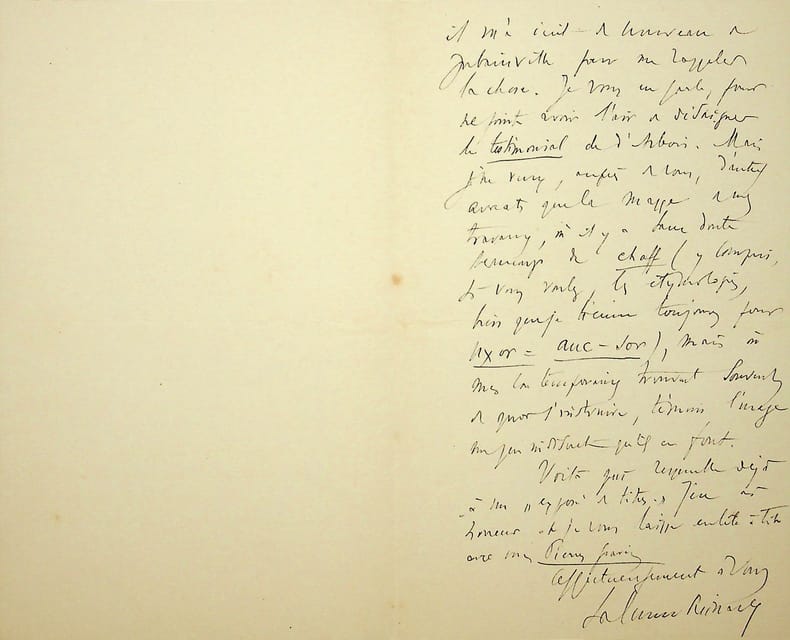 il m'a écrit de nouveau de
Jubainville pour me rappeler
la chose. Je vous en parle, pour
ne point avoir l'air de dédaigner
le testimonial de d'Arbois. Mais
je ne veux, auprès de vous, d'autres
avocats que la masse de mes
travaux, où il y a sans doute
beaucoup de chaff (y compris,
si vous voulez, les étymologies,
bien que je tienne toujours pour
uxor = auc-sor), mais où
mes contemporains trouvent souvent
de quoi s'instruire, témoin l'usage
un peu indiscret qu'ils en font.
Voilà qui ressemble déjà
à un "exposé de titres." J'en ai
horreur et je vous laisse en tête à tête
avec mes Pierres gravées
Affectueusement à vous
Salomon Reinach